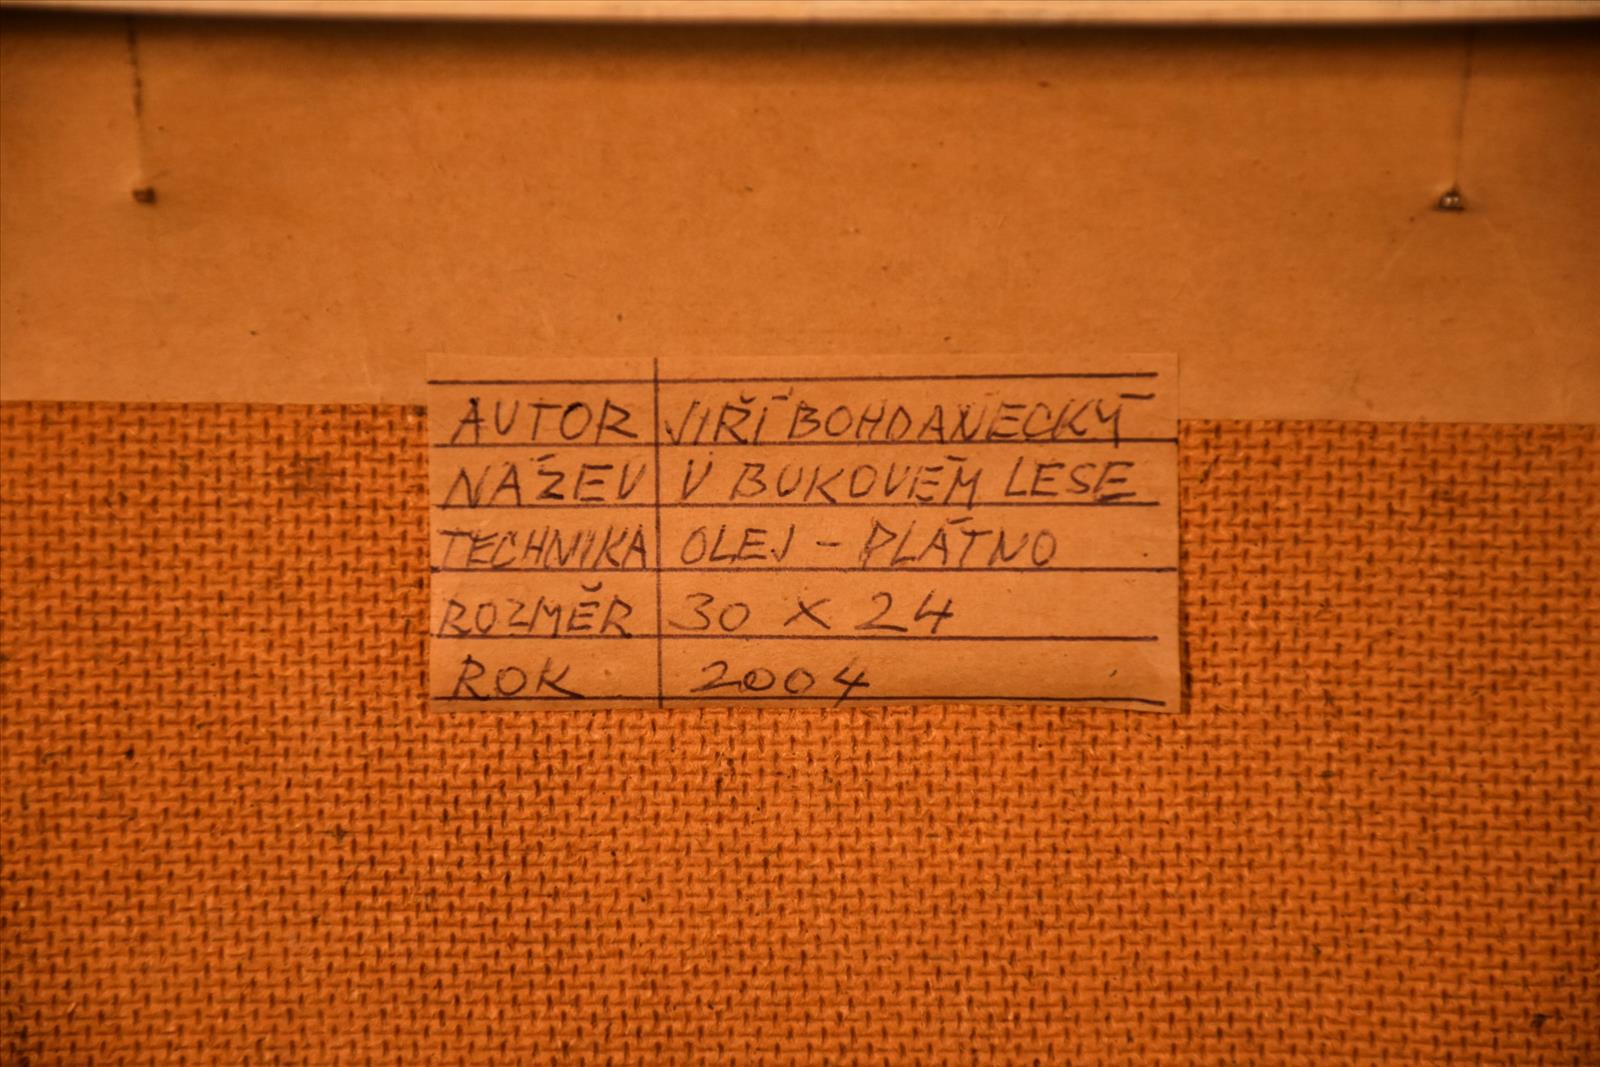 AUTOR JIŘÍ BOHDANECKÝ
NÁZEV V BUKOVÉM LESE
TECHNIKA OLEJ - PLÁTNO
ROZMĚR 30 X 24
ROK 2004